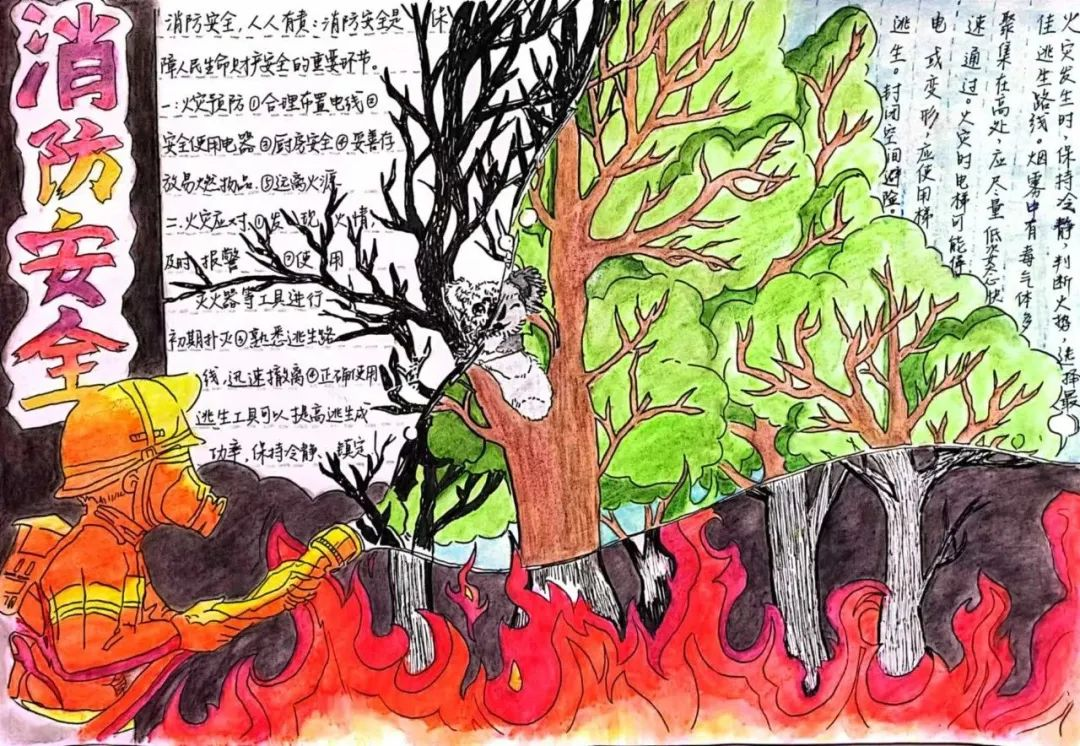 消防安全
消防安全,人人有责:消防安全是 保
障人民生命财产安全的重要环节。
一:火灾预防①合理布置电线②
安全使用电器③厨房安全④妥善存
放易燃物品.⑤远离火源
二.火灾应对.①发 现 火情,
及时 报警 ②使 用
灭火器等工具进行
初期扑灭③熟悉逃生路
线,迅速撤离④正确使用
逃生工具可以提高逃生成
功率,保持冷静、镇定
火灾发生时,保持冷静,判断火势,选择最
佳逃生路线。烟雾中有毒气体多
聚集在高处,应尽量低姿态快
速通过。火灾时电梯可能停
电或变形,应使用梯
逃生。封闭空间避险。